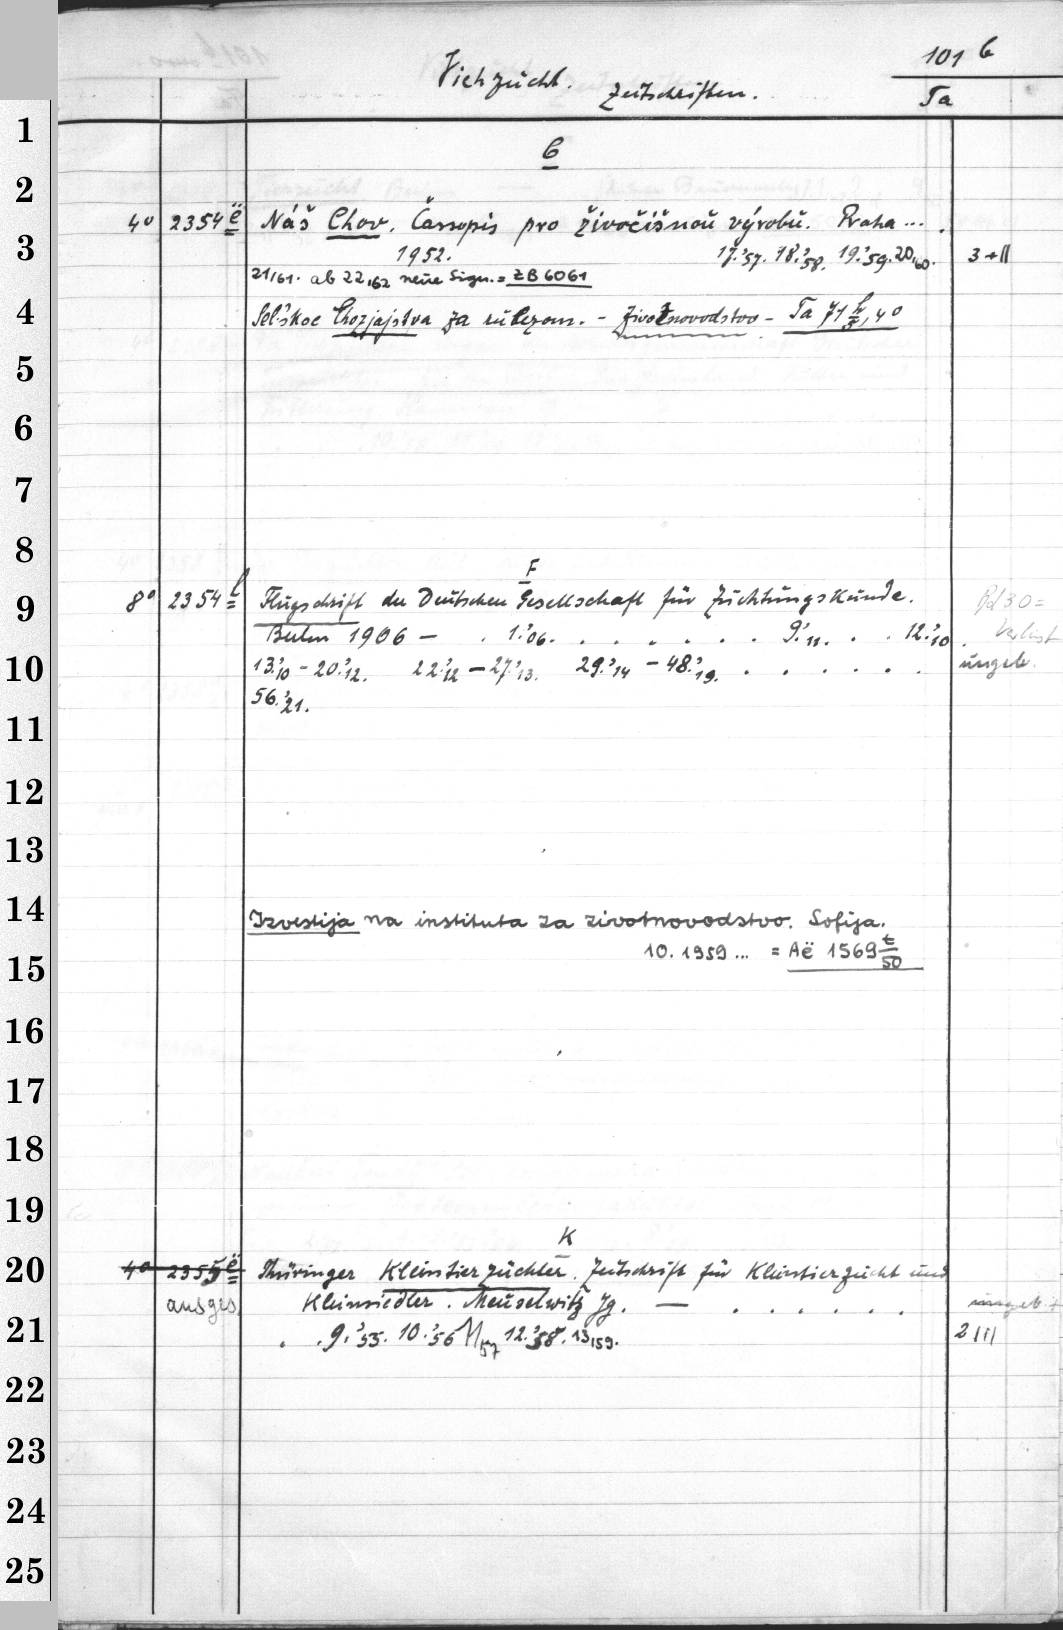 101 b
Viehzucht. Zeitschriften. Ta
C
4° 2354 ë Náš Chov. Časopis pro živočišnou výrobu. Praha ... .
1952. 17.'57. 18.'58. 19.'59. 20,60. 3+II
21/61. ab 22,62 neue Sign. = ZB 6061
Sel'skoe Chozjajstva za rubezom. - Zivotnovodstvo - Ta 71, 4°
F
8° 2354 f Flugschrift der Deutschen Gesellschaft für Züchtungskunde. Bd 30 =
Berlin 1906 — . 1.'06. . . . . . . 9.'11. . . 12.'10 . Verlust
13.'10 - 20.'12. 22.'12 - 27.'13. 29.'14 - 48.'19. . . . . . . ungeb.
56.'21.
Izvestija na instituta za zivotnovodstvo. Sofija.
10. 1959 ... = Aë 1569 t/50
K
4° 2355 ë Thüringer Kleintierzüchter. Zeitschrift für Kleintierzucht und
ausges. Kleinsiedler. Meuselwitz Jg. — . . . . . . ungeb. +
. . 9.'55. 10.'56 11/57 12.'58. 13,59. 2 III
1
2
3
4
5
6
7
8
9
10
11
12
13
14
15
16
17
18
19
20
21
22
23
24
25